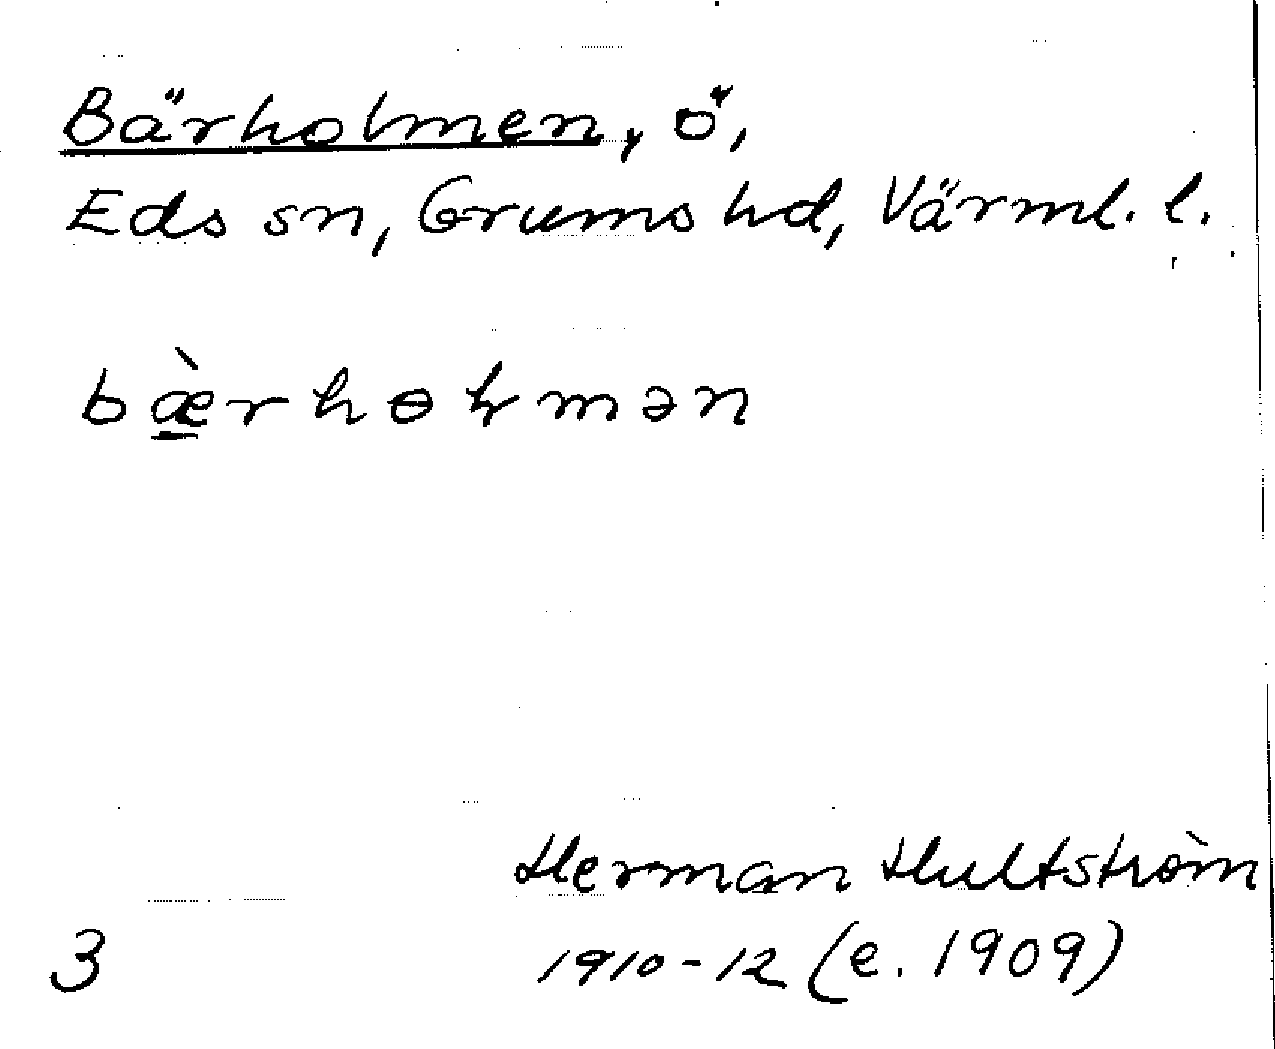 Bärholmen, ö,
Eds sn, Grums hd, Värml. l.
bæ̱̀rhɵɫmən
Herman Hultström
3 1910-12 (e. 1909)